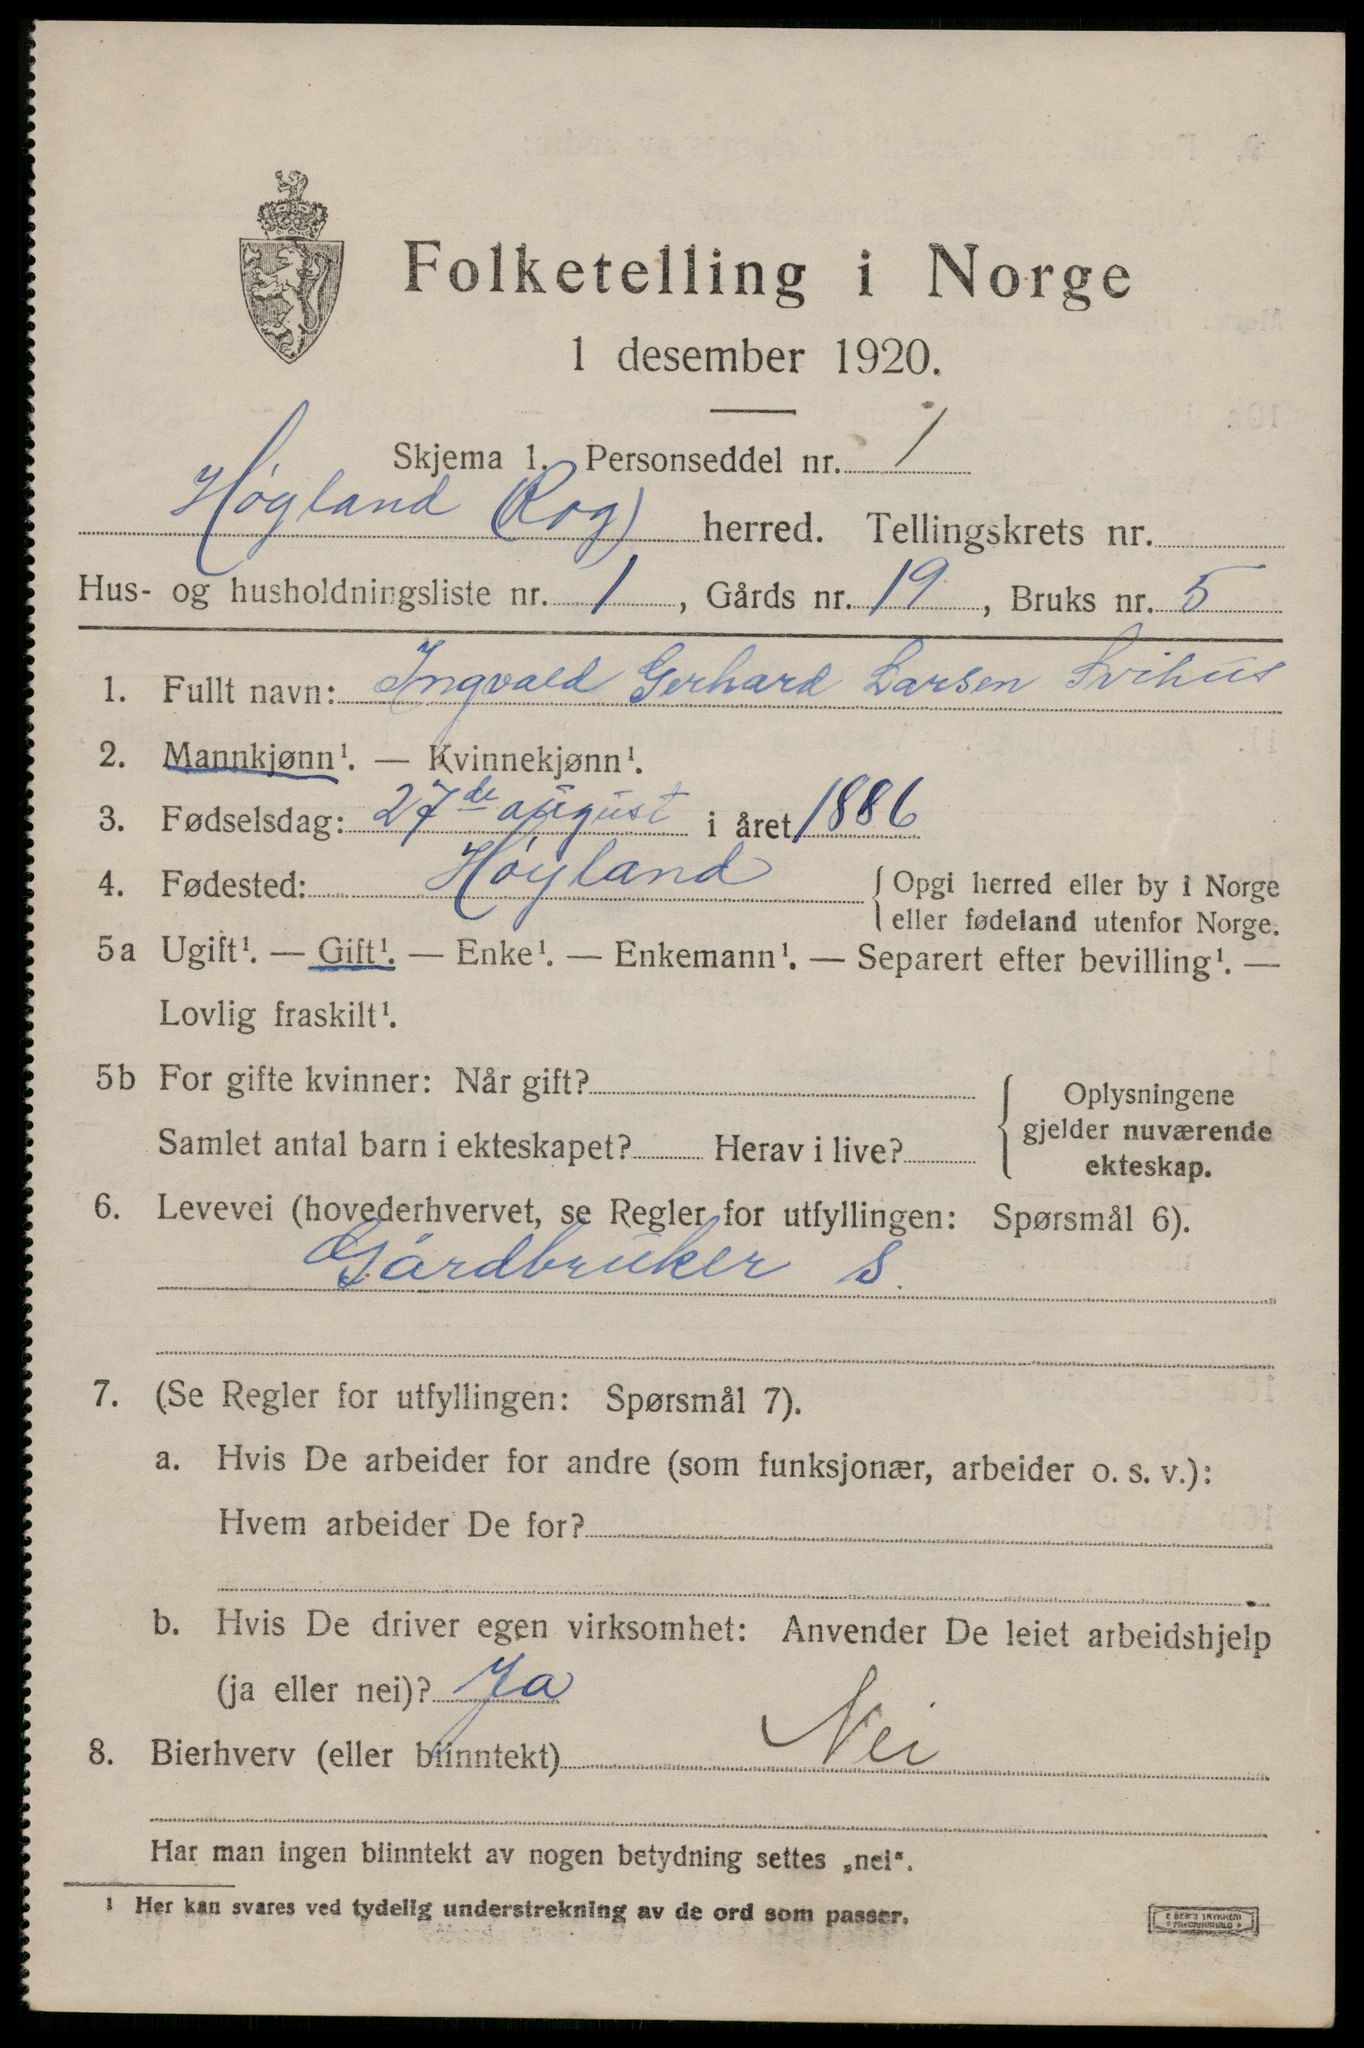 Folketelling i Norge
1 desember 1920.
Skjema 1. Personseddel nr. 1
Høyland (Rog) herred. Tellingskrets nr.
Hus- og husholdningsliste nr. 1, Gårds nr. 19, Bruks nr. 5
1. Fullt navn: Ingvald Gerhard Larsen Svihus
2. Mannkjønn¹. — Kvinnekjønn¹.
3. Fødselsdag: 27de august i året 1886
4. Fødested: Høyland
{ Opgi herred eller by i Norge
eller fødeland utenfor Norge.
5a Ugift¹. — Gift¹. — Enke¹. — Enkemann¹. — Separert efter bevilling¹. —
Lovlig fraskilt¹.
5b For gifte kvinner: Når gift?
Samlet antal barn i ekteskapet? Herav i live?
{ Oplysningene
gjelder nuværende
ekteskap.
6. Levevei (hovederhvervet, se Regler for utfyllingen: Spørsmål 6).
Gårdbruker S.
7. (Se Regler for utfyllingen: Spørsmål 7).
a. Hvis De arbeider for andre (som funksjonær, arbeider o. s. v.):
Hvem arbeider De for?
b. Hvis De driver egen virksomhet: Anvender De leiet arbeidshjelp
(ja eller nei)? Ja
8. Bierhverv (eller biinntekt) Nei
Har man ingen biinntekt av nogen betydning settes „nei“.
¹ Her kan svares ved tydelig understrekning av de ord som passer.